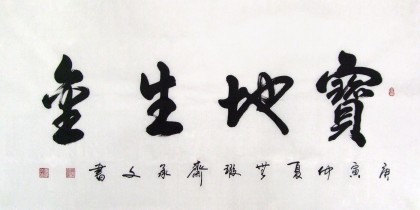 寶地生金
庚寅仲夏齋承文書